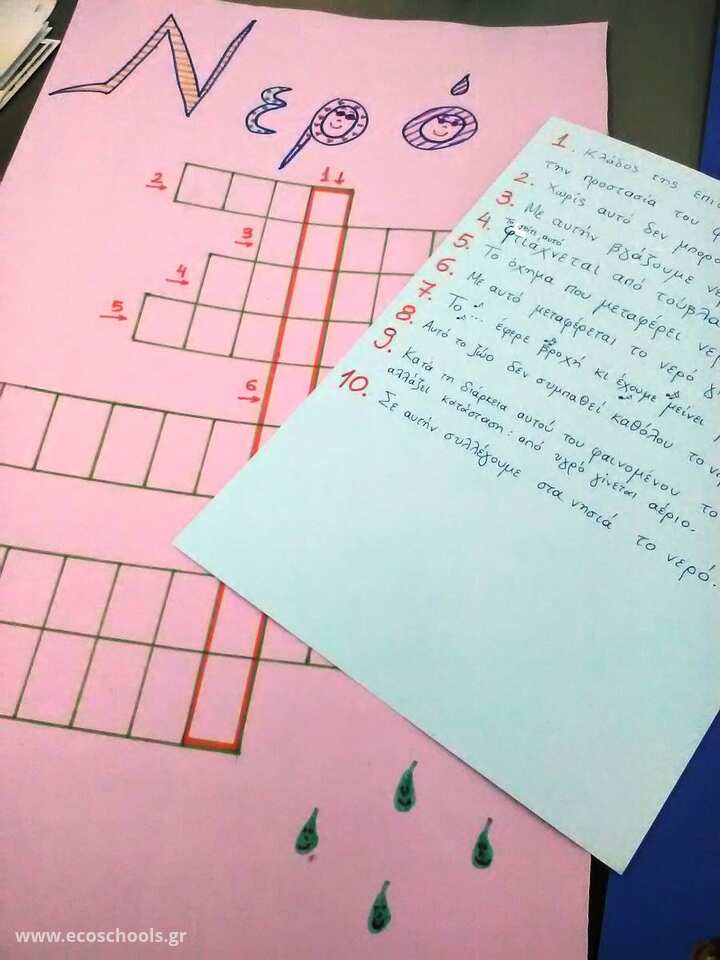 Νερό
2
1
3
4
5
6
1. Κλάδος της
την προστασία του
2. Χωρίς αυτό δεν
3. Με αυτήν βγάζουμε
4.
φτιάχνεται από τούβλα
5. Το όχημα που μεταφέρει
6. Με αυτό μεταφέρεται το νερό
7. Το ... έφερε βροχή κι έχουμε μείνει
8. Αυτό το ζώο δεν συμπαθεί καθόλου το
9. Κατά τη διάρκεια αυτού του φαινομένου το
αλλάζει κατάσταση: από υγρό γίνεται αέριο.
10. Σε αυτήν συλλέγουμε στα νησιά το νερό.
www.ecoschools.gr